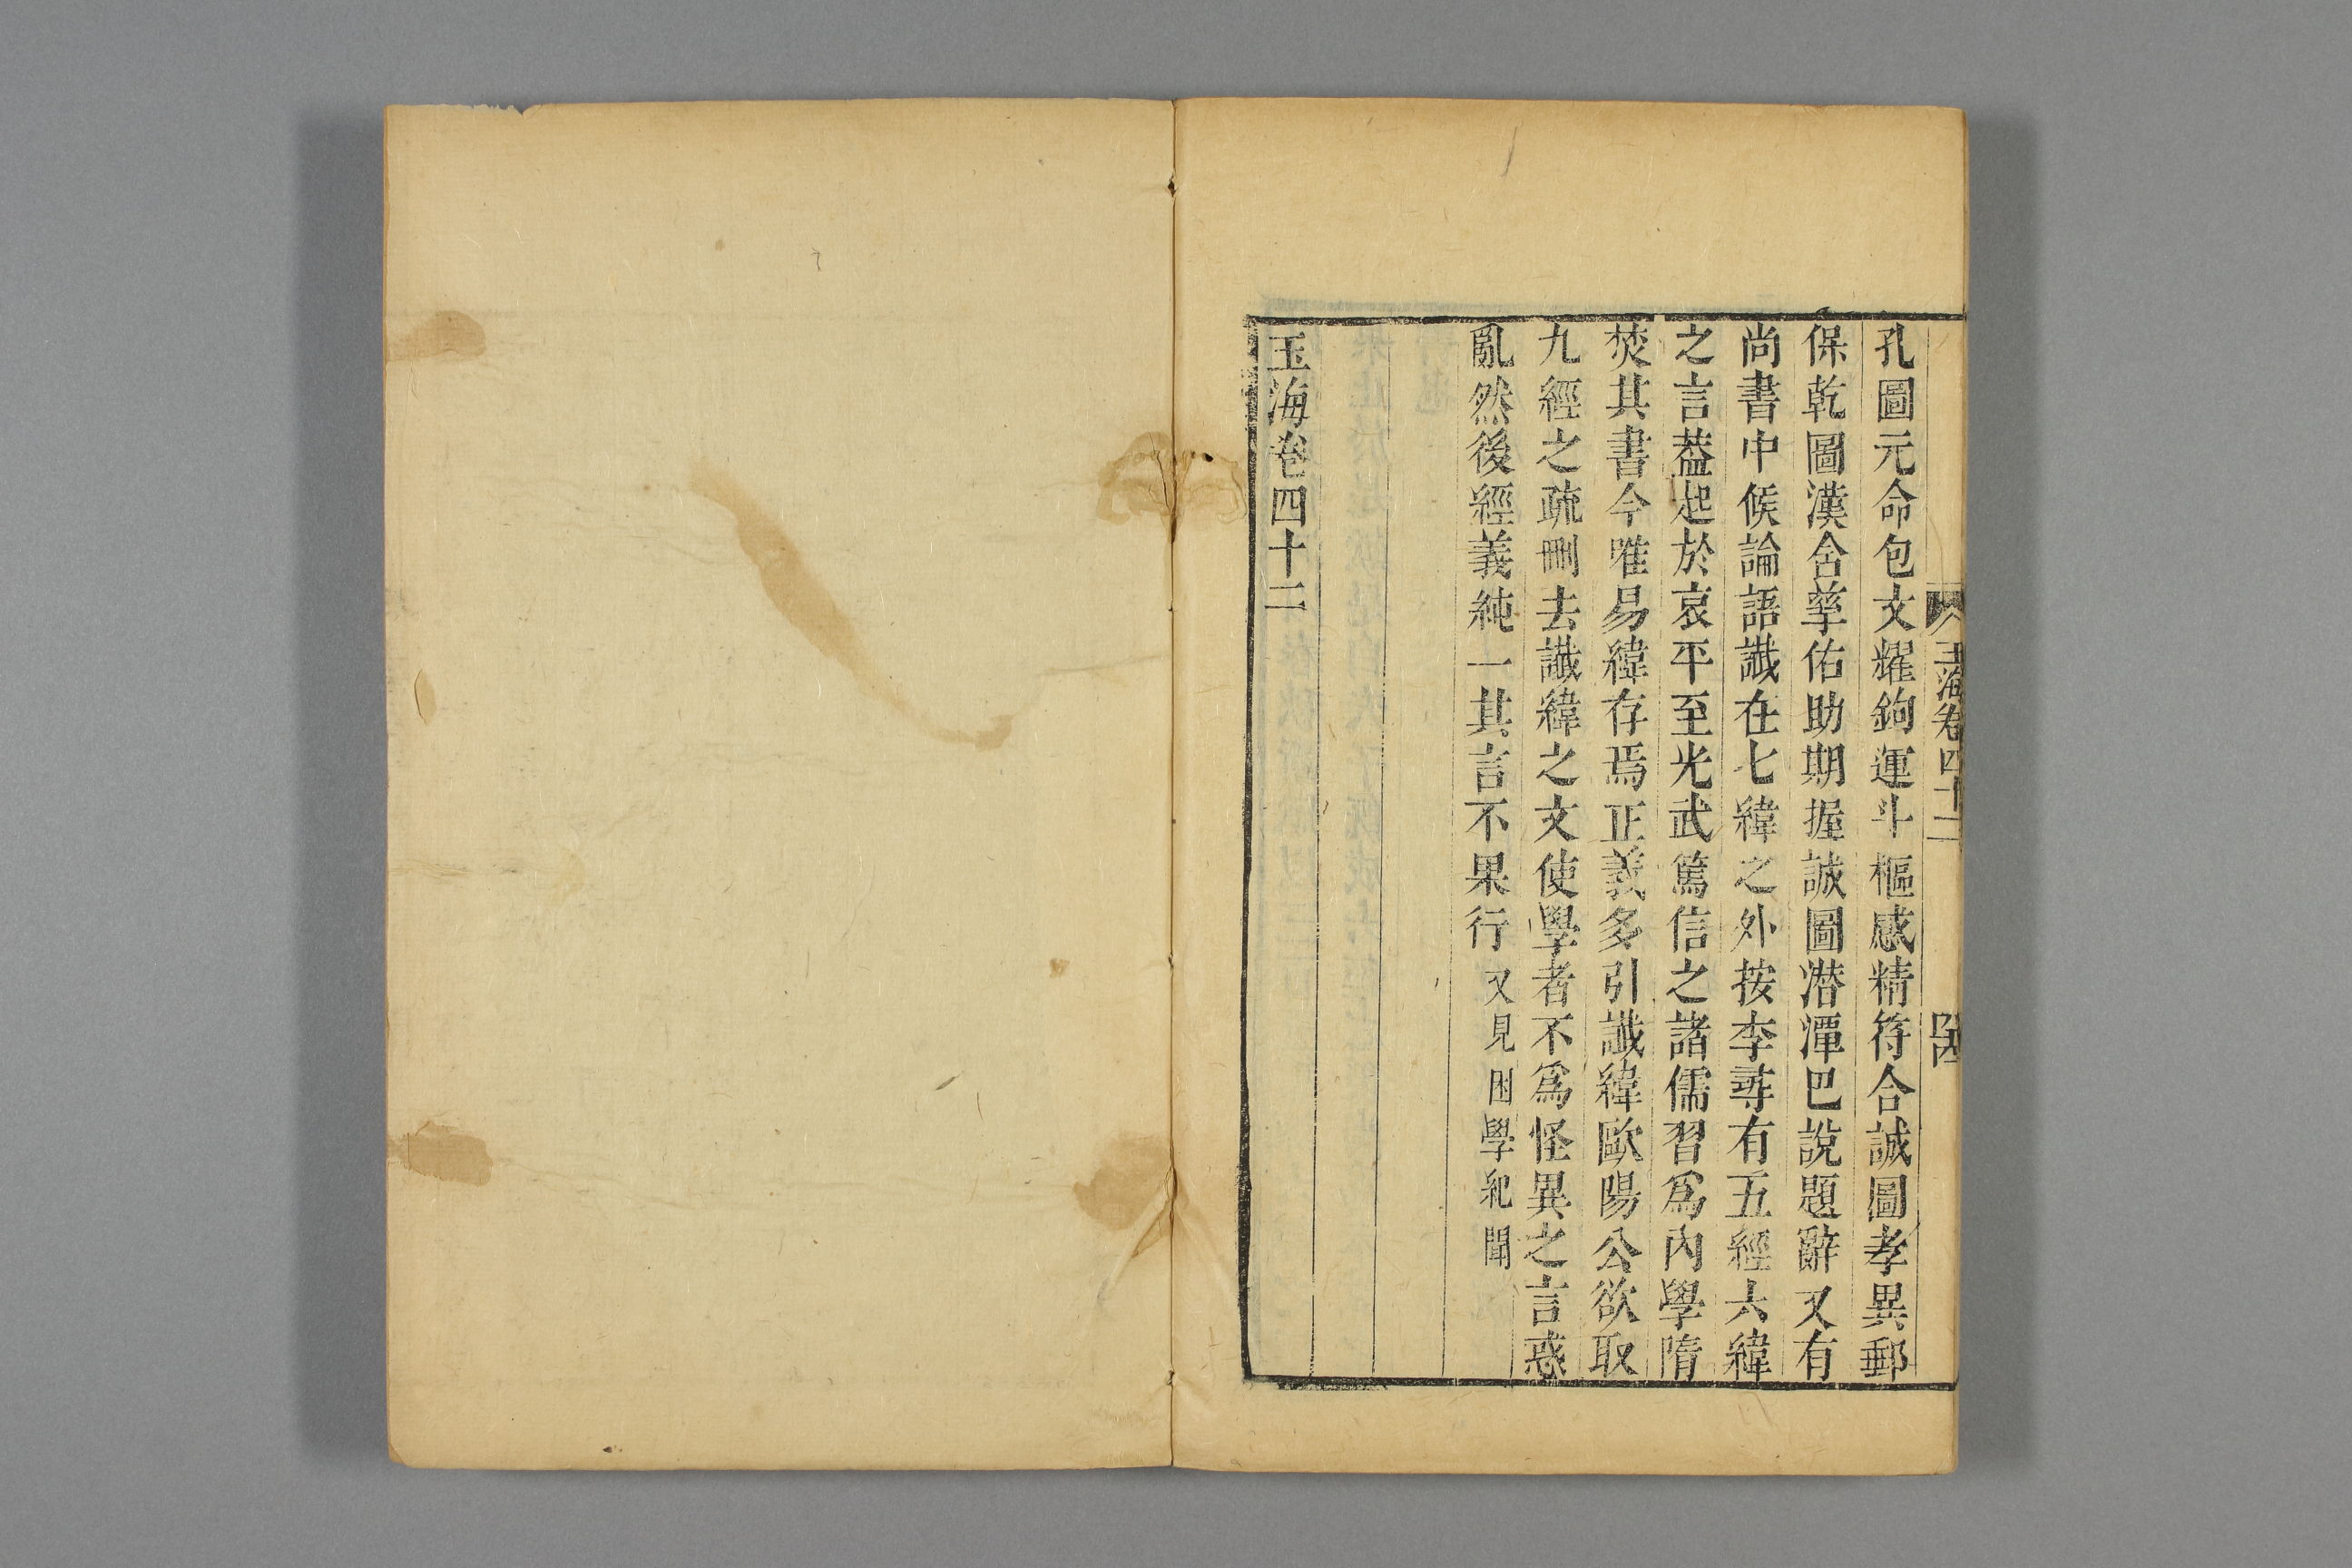 玉海卷四十二
孔圖元命包文耀鉤運斗樞感精符合誠圖孝異郵
保乾圖漢含孳佑助期握誠圖潜潭巴說題辭又有
尚書中候論語讖在七緯之外按李尋有五經六緯
之言葢起於哀平至光武篤信之諸儒習爲內學隋
焚其書今唯易緯存焉正義多引讖緯歐陽公欲取
九經之疏刪去讖緯之文使學者不爲怪異之言惑
亂然後經義純一其言不果行又見困學紀聞
玉海卷四十二